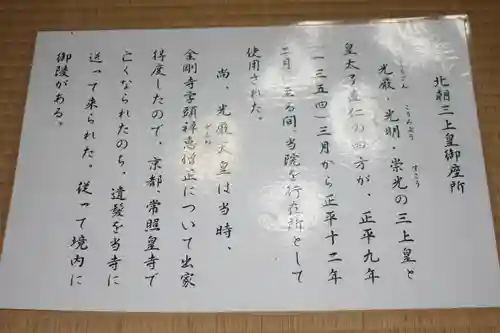 北朝三上皇御座所
光厳・光明・崇光の三上皇と
こうごん こうみょう すこう
皇太子直仁の四方が、正平九年
(一三五四)三月から正平十二年
二月に至る間、当院を行在所として
使用された。
尚、光厳天皇は当時、
金剛寺学頭禅恵僧正について出家
ぜんね
得度したので、京都・常照皇寺で
亡くなられたのち、遺髪を当寺に
送って来られた。従って境内に
御陵がある。